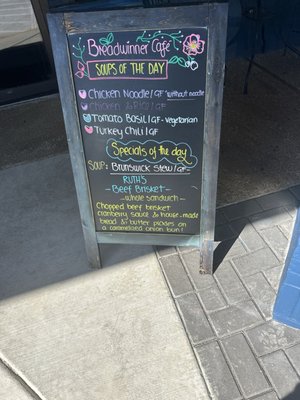 Breadwinner Cafe
SOUPS OF THE DAY
Chicken Noodle/GF without noodle
Chicken &
Tomato Basil/GF-vegetarian
Turkey Chili/GF
Specials of the day
SOUP: Brunswick Stew/GF
RUTH'S
- Beef Brisket -
- whole sandwich -
Chopped beef brisket
cranberry sauce & house-made
bread & butter pickles on
a caramelized onion bun!